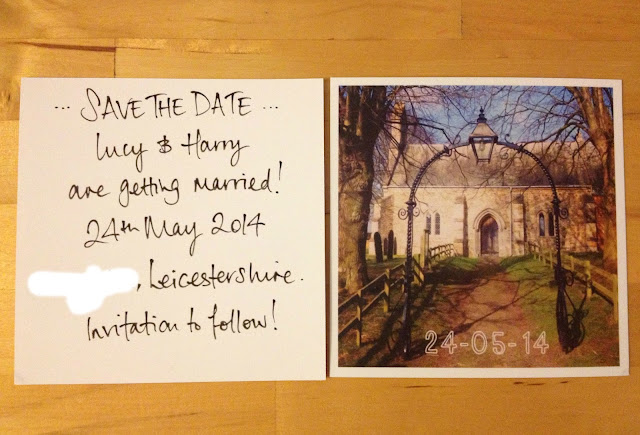 ... SAVE THE DATE ...
Lucy & Harry
are getting married!
24th May 2014
, Leicestershire.
Invitation to follow!
24-05-14